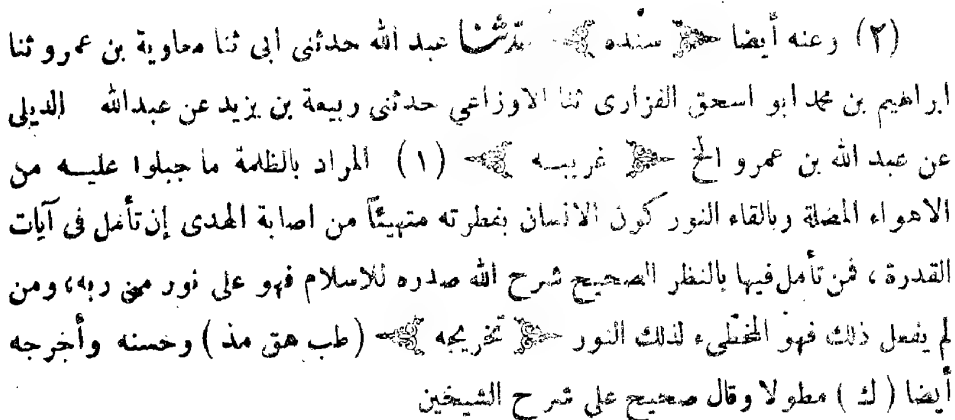 (٢) وعنه أيضا ﴿ سنده ﴾ حدثنا عبد الله حدثنى ابى ثنا معاوية بن عمرو ثنا
ابراهيم بن محمد ابو اسحق الفزارى ثنا الاوزاعي حدثنى ربيعة بن يزيد عن عبدالله الديلى
عن عبد الله بن عمرو الخ ﴿ غريبه ﴾ (١) المراد بالظلمة ما جبلوا عليه من
الاهواء المضلة وبالقاء النور كون الانسان بفطرته متهيئاً من اصابة الهدى إن تأمل فى آيات
القدرة ، فمن تأمل فيها بالنظر الصحيح شرح الله صدره للاسلام فهو على نور من ربه، ومن
لم يفعل ذلك فهو المخطىء لذلك النور ﴿ تخريجه ﴾ (طب هق مذ) وحسنه وأخرجه
أيضا (ك) مطولا وقال صحيح على شرح الشيخين